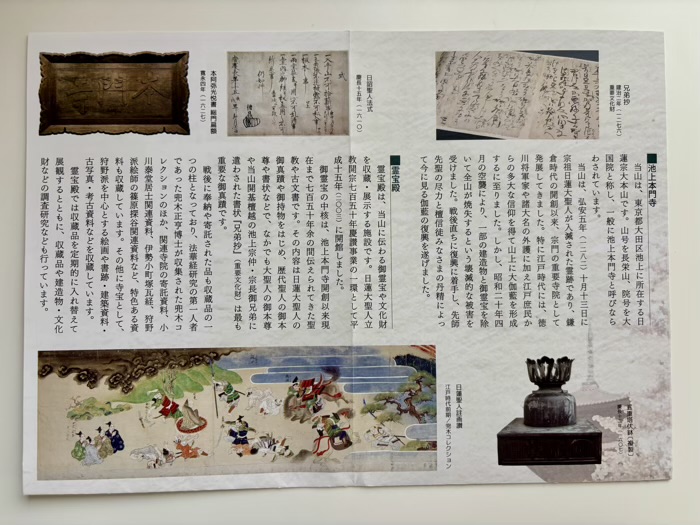 兄弟抄
建治二年（一二七六）
重要文化財
日詔聖人法式
慶長十五年（一六一〇）
本阿弥光悦書 総門扁額
寛永四年（一六二七）
池上本門寺
当山は、東京都大田区池上に所在する日
蓮宗大本山です。山号を長栄山、院号を大
国院と称し、一般に池上本門寺と呼びなら
わされています。
当山は、弘安五年（一二八二）十月十三日に
宗祖日蓮大聖人が入滅された霊跡であり、鎌
倉時代の開創以来、宗門の重要寺院として
発展してきました。特に江戸時代には、徳
川将軍家や諸大名の外護に加え江戸庶民か
らの多大な信仰を得て山上に大伽藍を形成
するに至りました。しかし、昭和二十年四
月の空襲により、一部の建造物と御霊宝を除
いて全山が焼失するという壊滅的な被害を
受けました。戦後直ちに復興に着手し、先師
先聖の尽力と檀信徒みなさまの丹精によっ
て今に見る伽藍の復興を遂げました。
霊宝殿
霊宝殿は、当山に伝わる御霊宝や文化財
を収蔵・展示する施設です。日蓮大聖人立
教開宗七百五十年慶讃事業の一環として平
成十五年（二〇〇三）に開館しました。
御霊宝の中核は、池上本門寺開創以来現
在まで七百五十年余の間伝えられてきた聖
教や古文書です。その内容は日蓮大聖人の
御真蹟や御持物をはじめ、歴代聖人の御本
尊や書状などで、なかでも大聖人の御本尊
や当山開基檀越の池上宗仲・宗長御兄弟に
遣わされた書状「兄弟抄」（重要文化財）は最も
重要な御真蹟です。
戦後に奉納や寄託された品も収蔵品の一
つの柱となっており、法華経研究の第一人者
であった兜木正亨博士が収集された兜木コ
レクションのほか、関連寺院の寄託資料、小
川泰堂居士関連資料、伊勢小町塚瓦経、狩野
派絵師の篠原探谷関連資料など、特色ある資
料も収蔵しています。その他に寺宝として、
狩野派を中心とする絵画や書跡・建築資料・
古写真・考古資料などを収蔵しています。
霊宝殿では収蔵品を定期的に入れ替えて
展観するとともに、収蔵品や建造物・文化
財などの調査研究なども行っています。
日蓮聖人註画讃
江戸時代前期／兜木コレクション